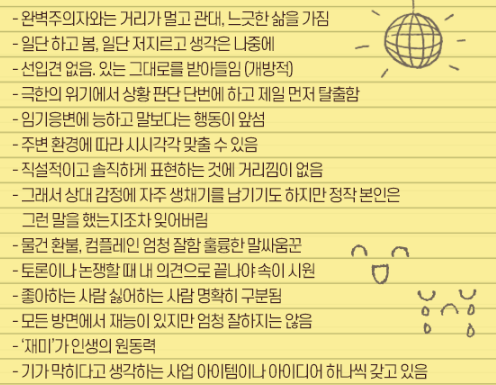 - 완벽주의자와는 거리가 멀고 관대, 느긋한 삶을 가짐
- 일단 하고 봄, 일단 저지르고 생각은 나중에
- 선입견 없음. 있는 그대로를 받아들임 (개방적)
- 극한의 위기에서 상황 판단 단번에 하고 제일 먼저 탈출함
- 임기응변에 능하고 말보다는 행동이 앞섬
- 주변 환경에 따라 시시각각 맞출 수 있음
- 직설적이고 솔직하게 표현하는 것에 거리낌이 없음
- 그래서 상대 감정에 자주 생채기를 남기기도 하지만 정작 본인은
그런 말을 했는지조차 잊어버림
- 물건 환불, 컴플레인 엄청 잘함 훌륭한 말싸움꾼
- 토론이나 논쟁할 때 내 의견으로 끝나야 속이 시원
- 좋아하는 사람 싫어하는 사람 명확히 구분됨
- 모든 방면에서 재능이 있지만 엄청 잘하지는 않음
- ‘재미’가 인생의 원동력
- 기가 막히다고 생각하는 사업 아이템이나 아이디어 하나씩 갖고 있음